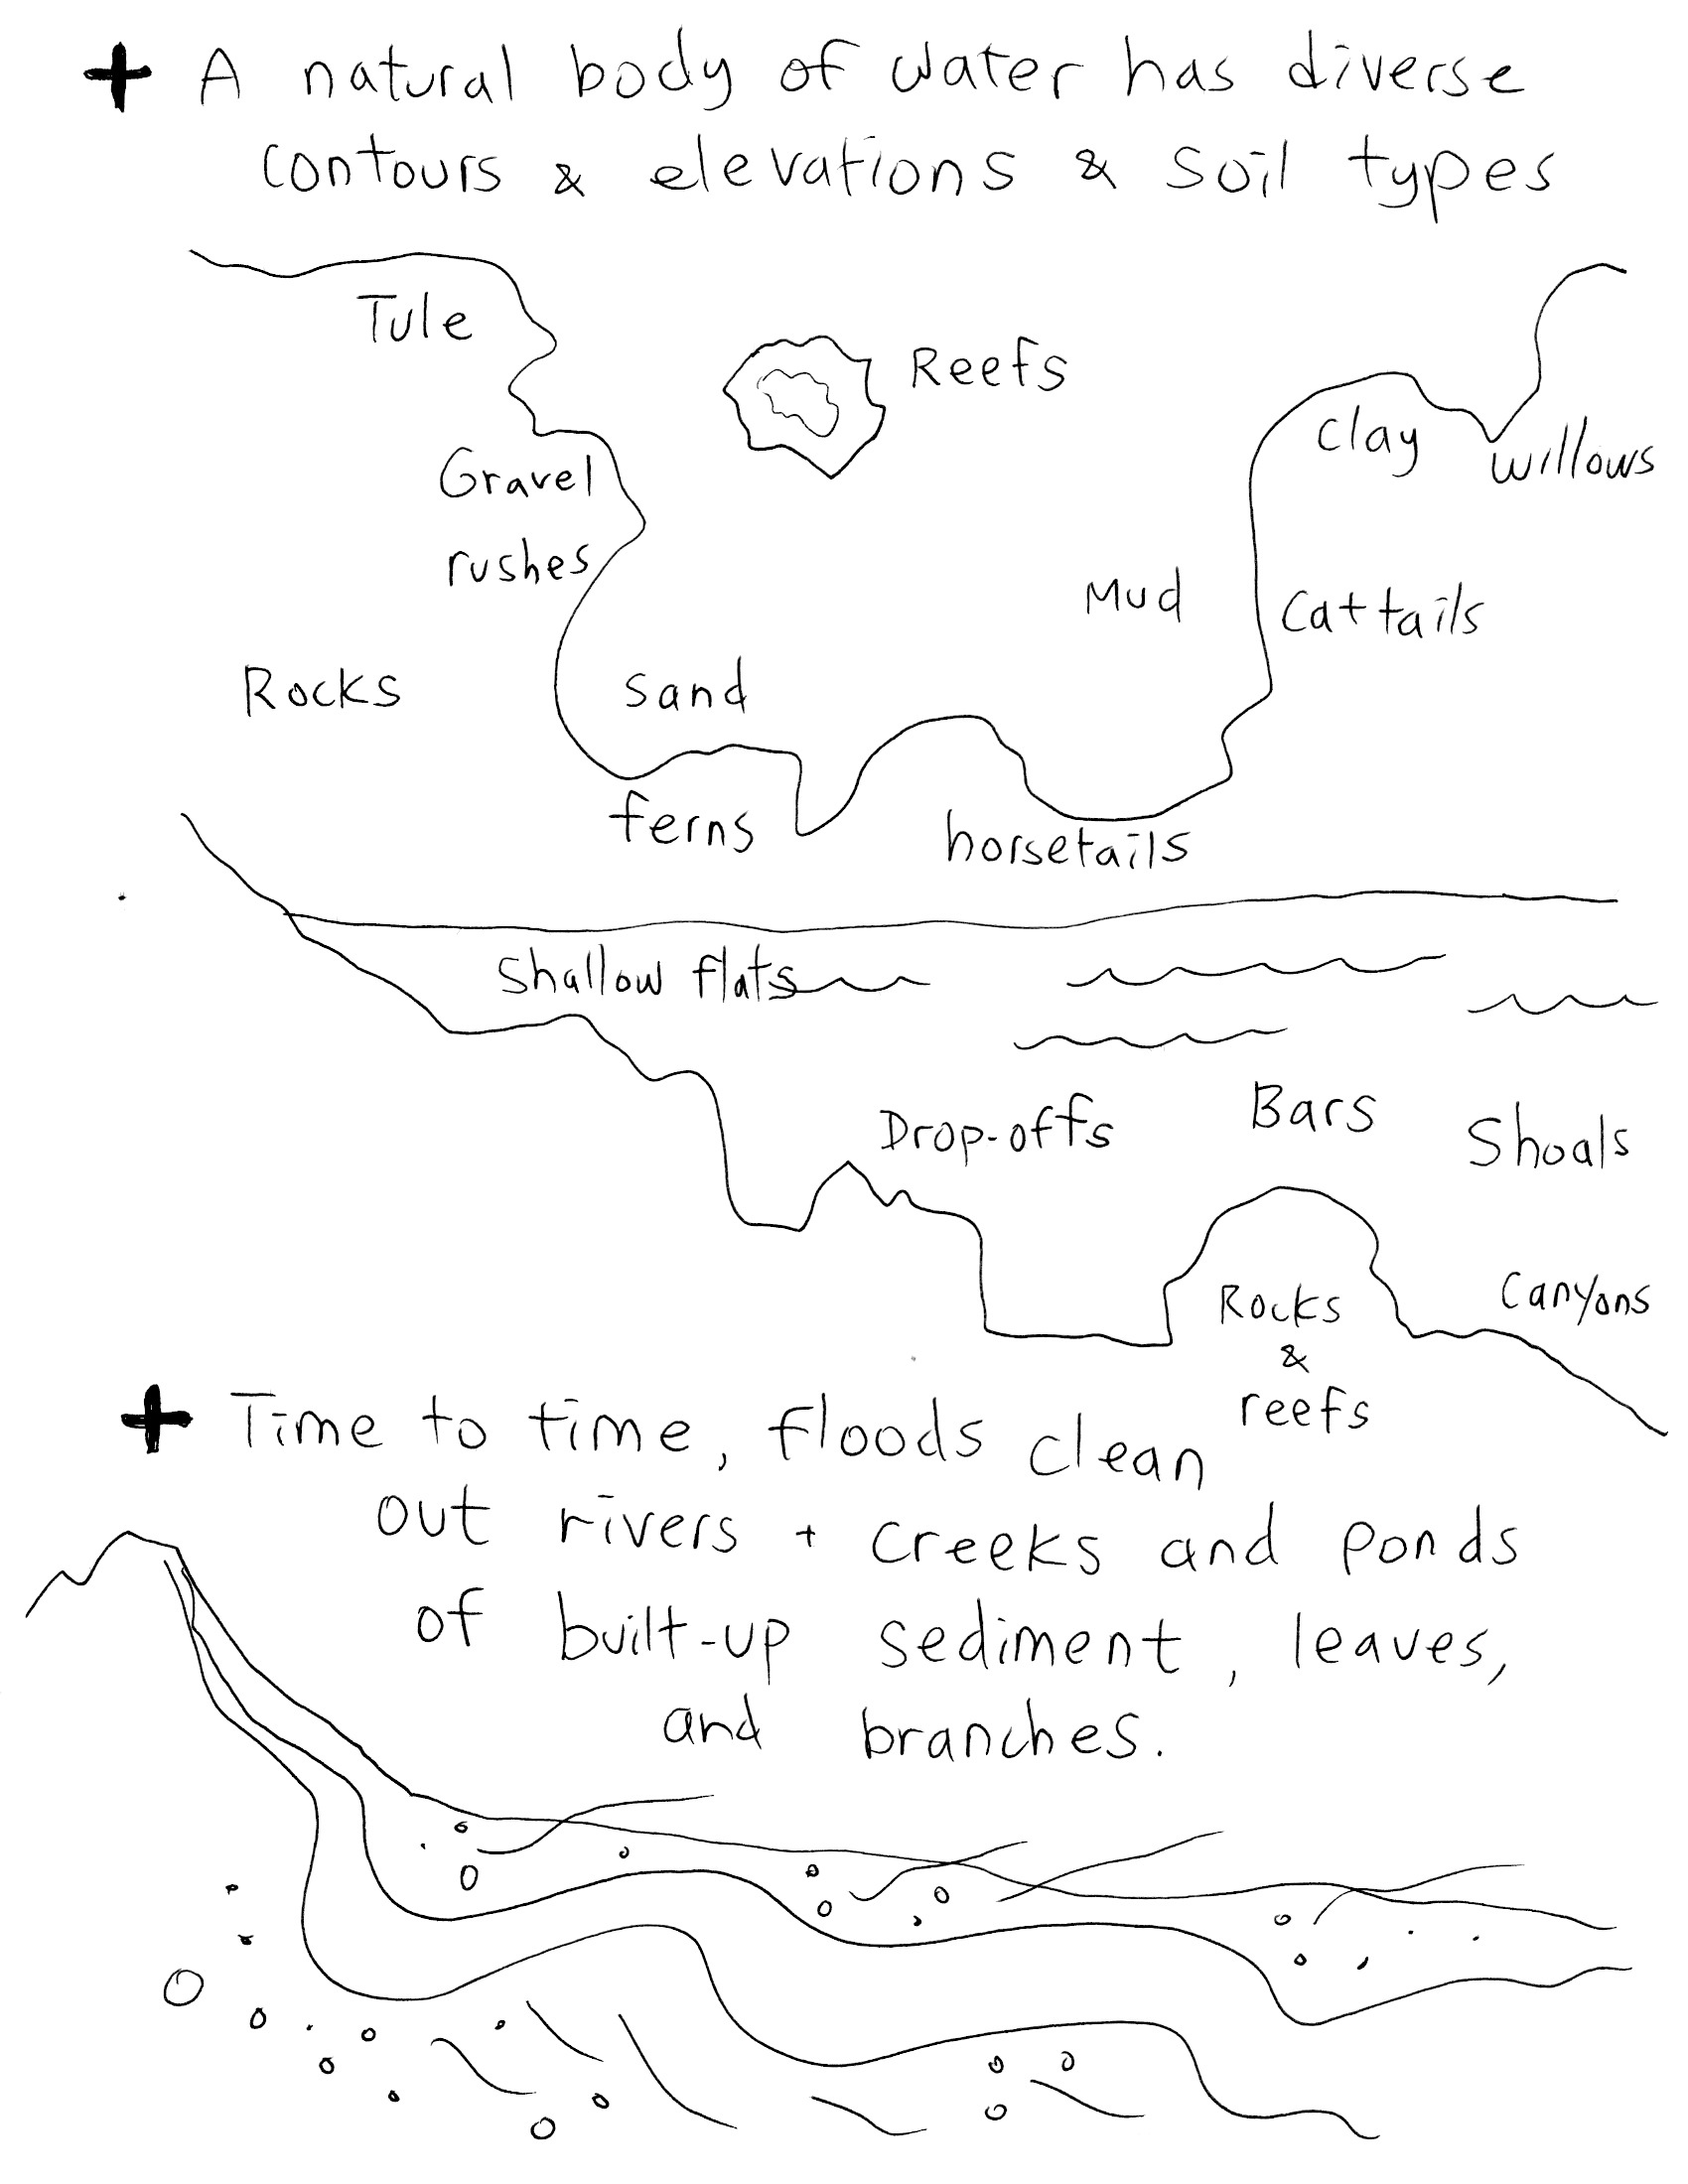 + A natural body of water has diverse
contours & elevations & soil types
Tule
Reefs
Clay
willows
Gravel
rushes
Mud
Cattails
Rocks
Sand
ferns
horsetails
Shallow flats
Drop-offs
Bars
Shoals
Canyons
Rocks
&
reefs
+ Time to time, floods clean
out rivers + creeks and ponds
of built-up sediment, leaves,
and branches.